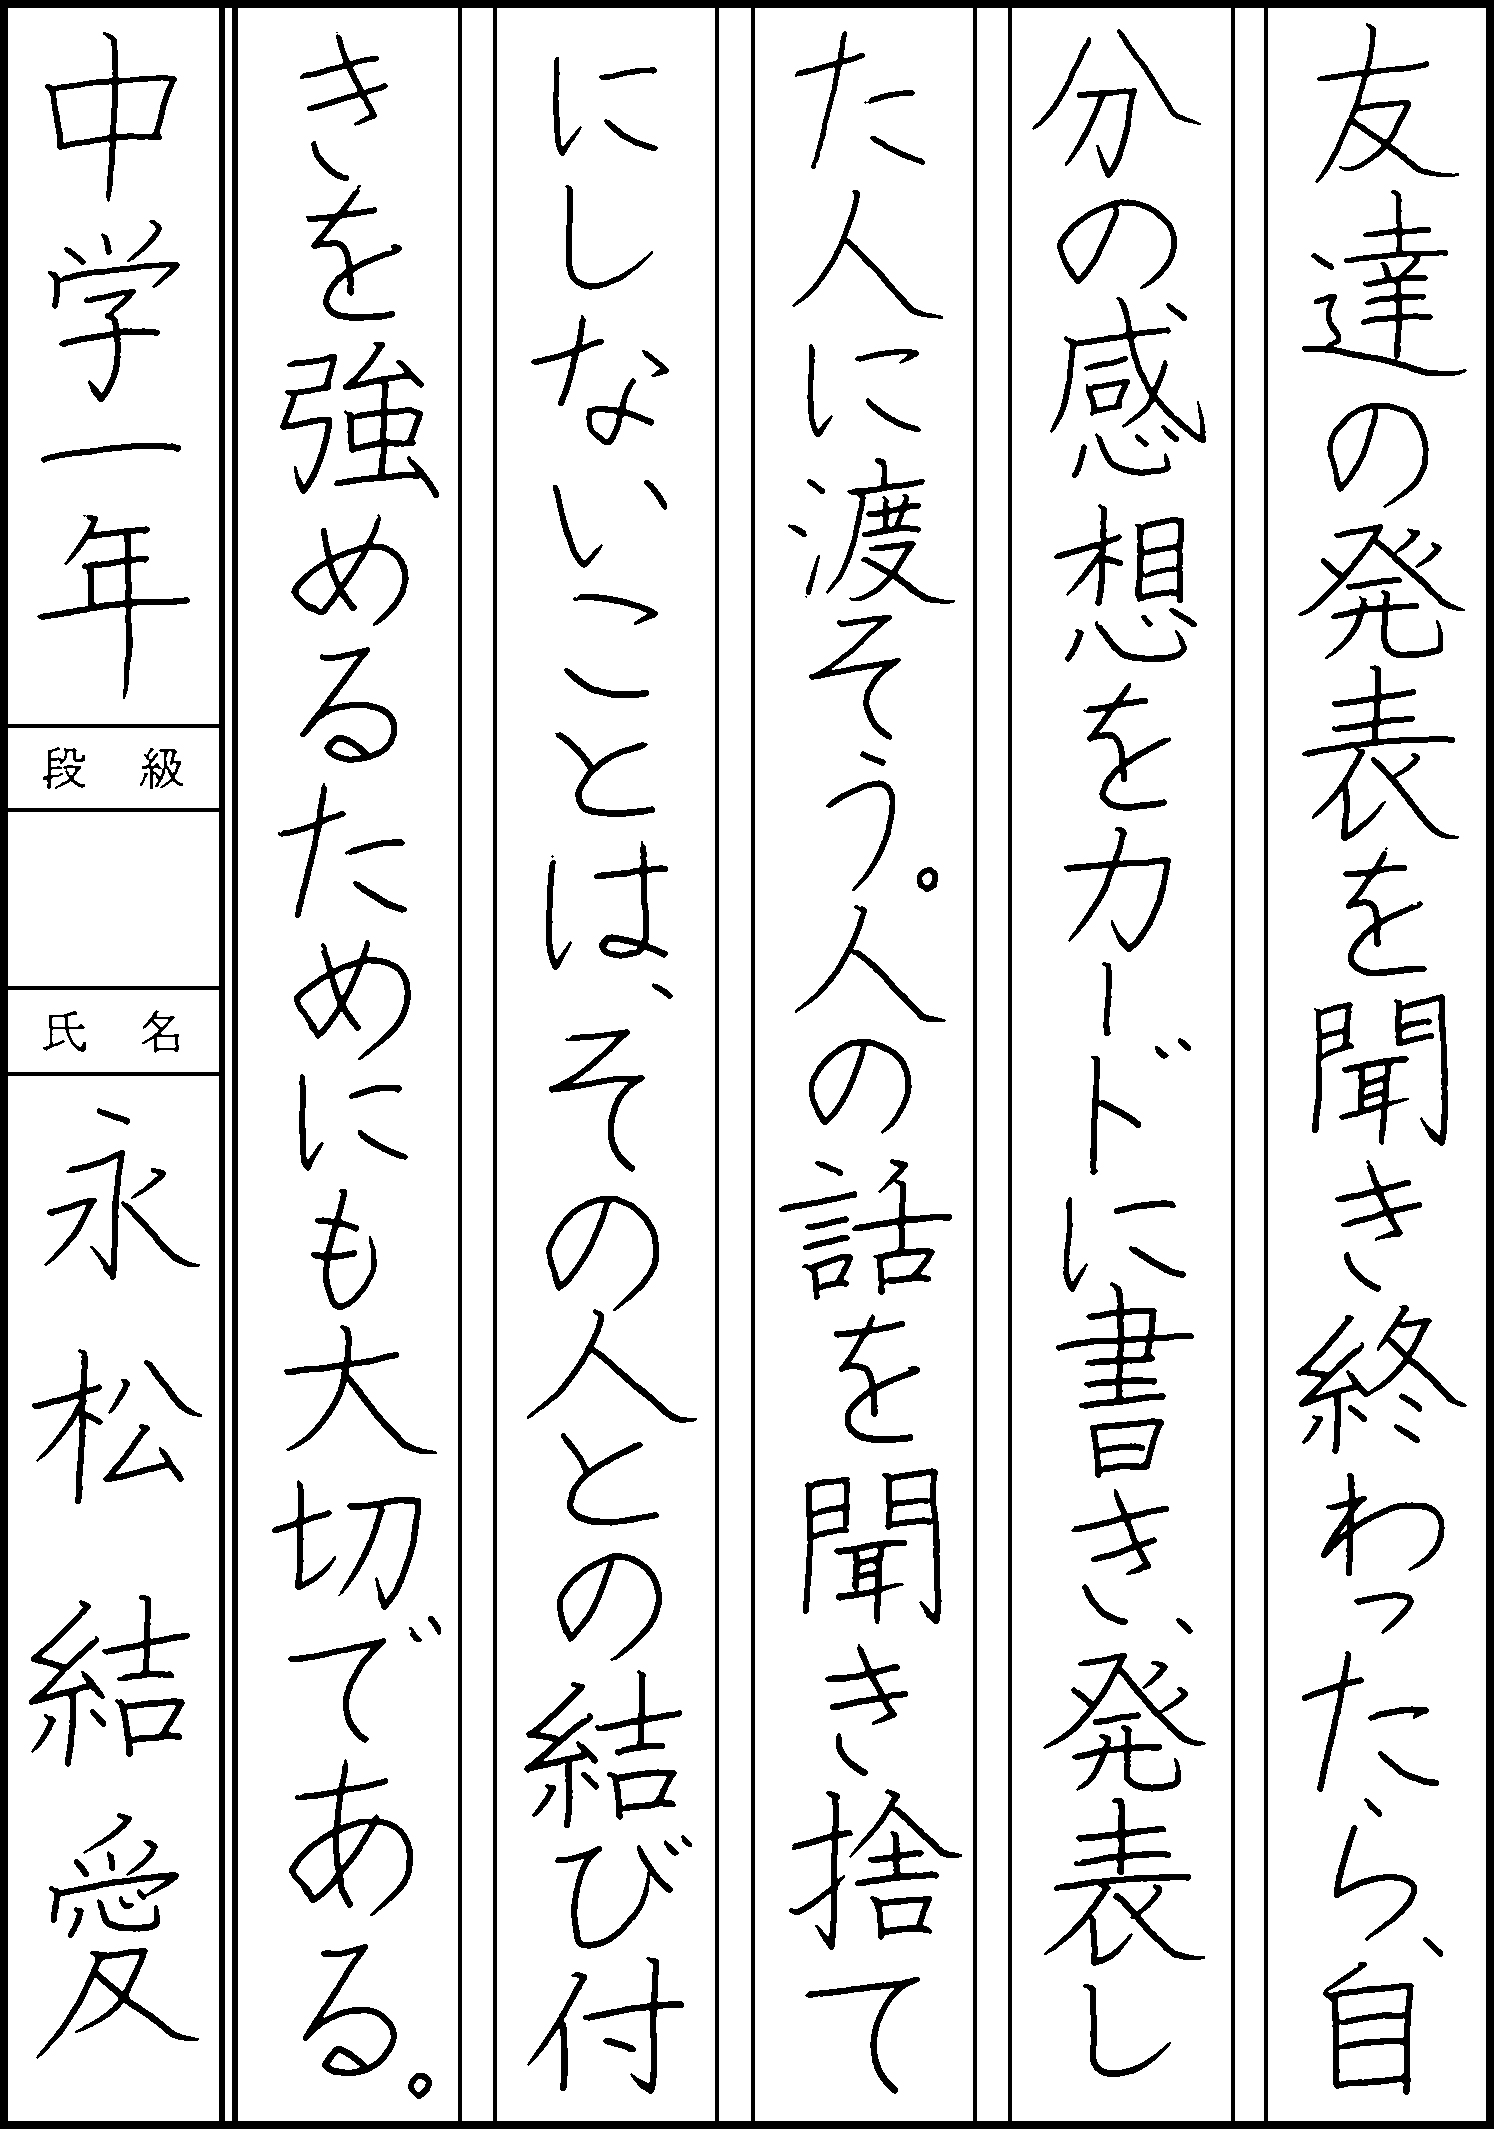 友達の発表を聞き終わったら、自
分の感想をカードに書き、発表し
た人に渡そう。人の話を聞き捨て
にしないことは、その人との結び付
きを強めるためにも大切である。
中学一年
段級
氏名
永松結愛